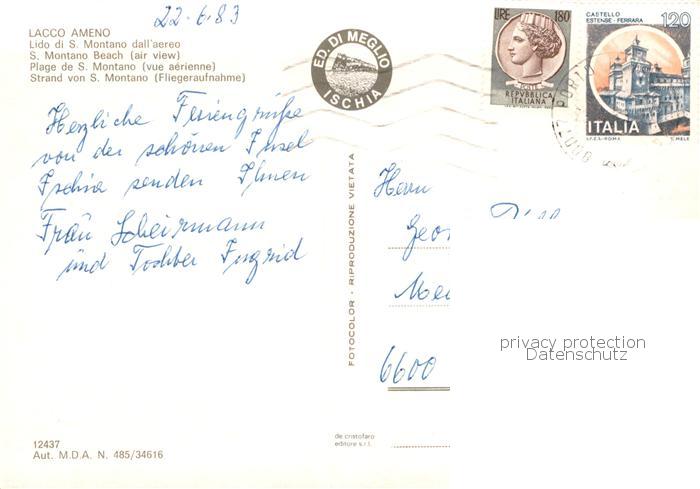 22-6.83
LACCO AMENO
Lido di S. Montano dall'aereo
S. Montano Beach (air view)
Plage de S. Montano (vue aérienne)
Strand von S. Montano (Fliegeraufnahme)
ED. DI MEGLIO
ISCHIA
LIRE 180
POSTE
REPVBBLICA
ITALIANA
CASTELLO
ESTENSE - FERRARA
120
ITALIA
I.P.Z.S. - ROMA
S. MELE
Herzliche Feriengrüße
von der schönen Insel
Ischia senden Ihnen
Frau Scheirmann
und Tochter Ingrid
FOTOCOLOR - RIPRODUZIONE VIETATA
Herrn
Geor
Mei
6600
privacy protection
Datenschutz
de cristofaro
editore s.r.l.
12437
Aut. M.D.A. N. 485/34616